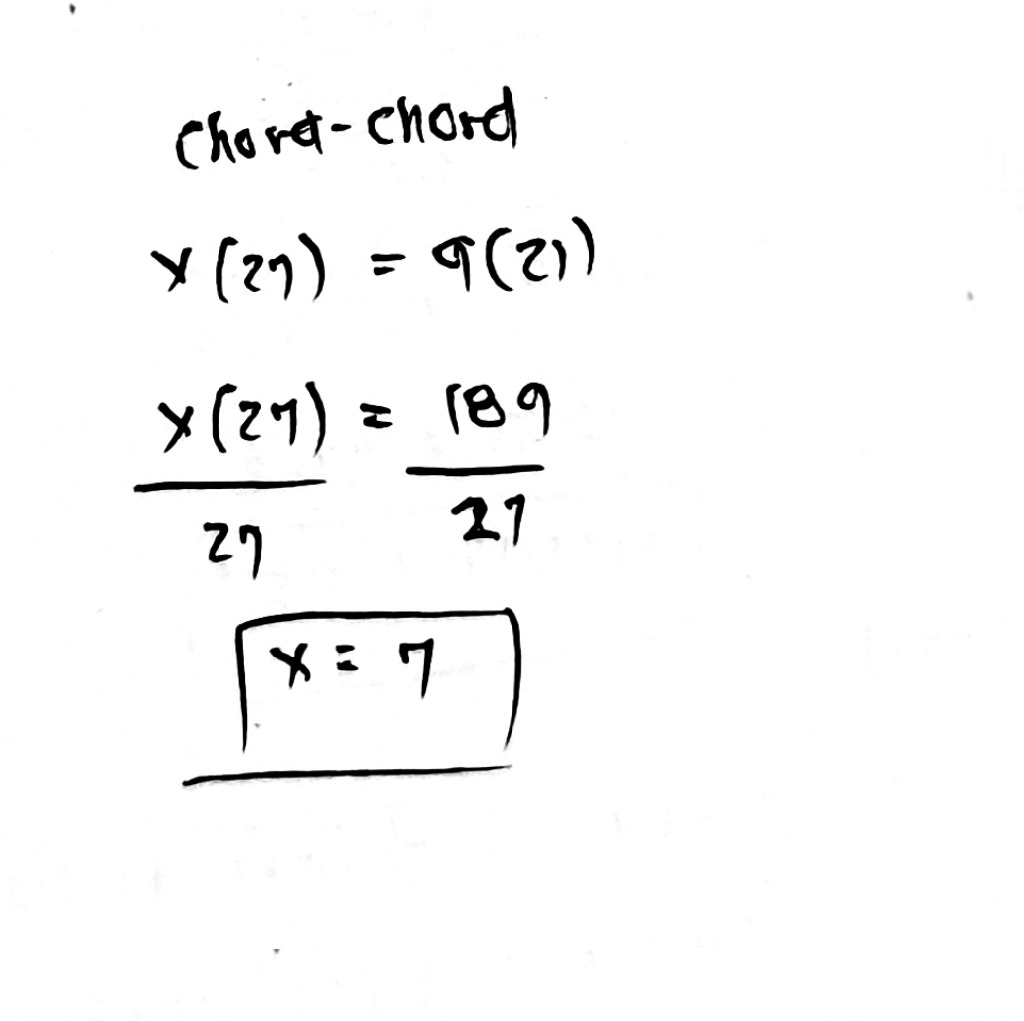 Chord-chord
x(27) = 9(21)
x(27) = 189
27 27
x = 7